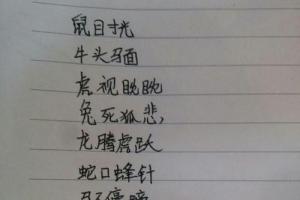 鼠目寸光
牛头马面
虎视眈眈
兔死狐悲,
龙腾虎跃
蛇口蜂针